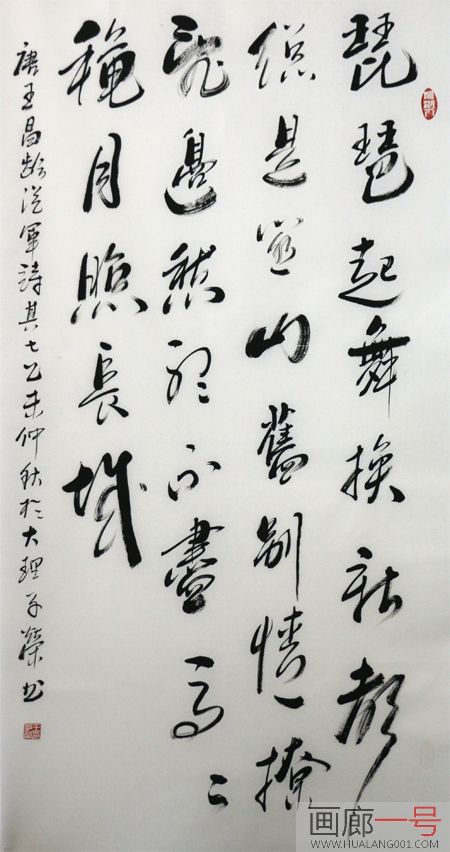 琵琶起舞換新聲
總是關山舊別情撩
亂邊愁聽不盡高〻
穐月照長城
唐王昌齡從軍詩其七乙未仲秋於大理子榮书
画廊一号
WWW.HUALANG001.COM